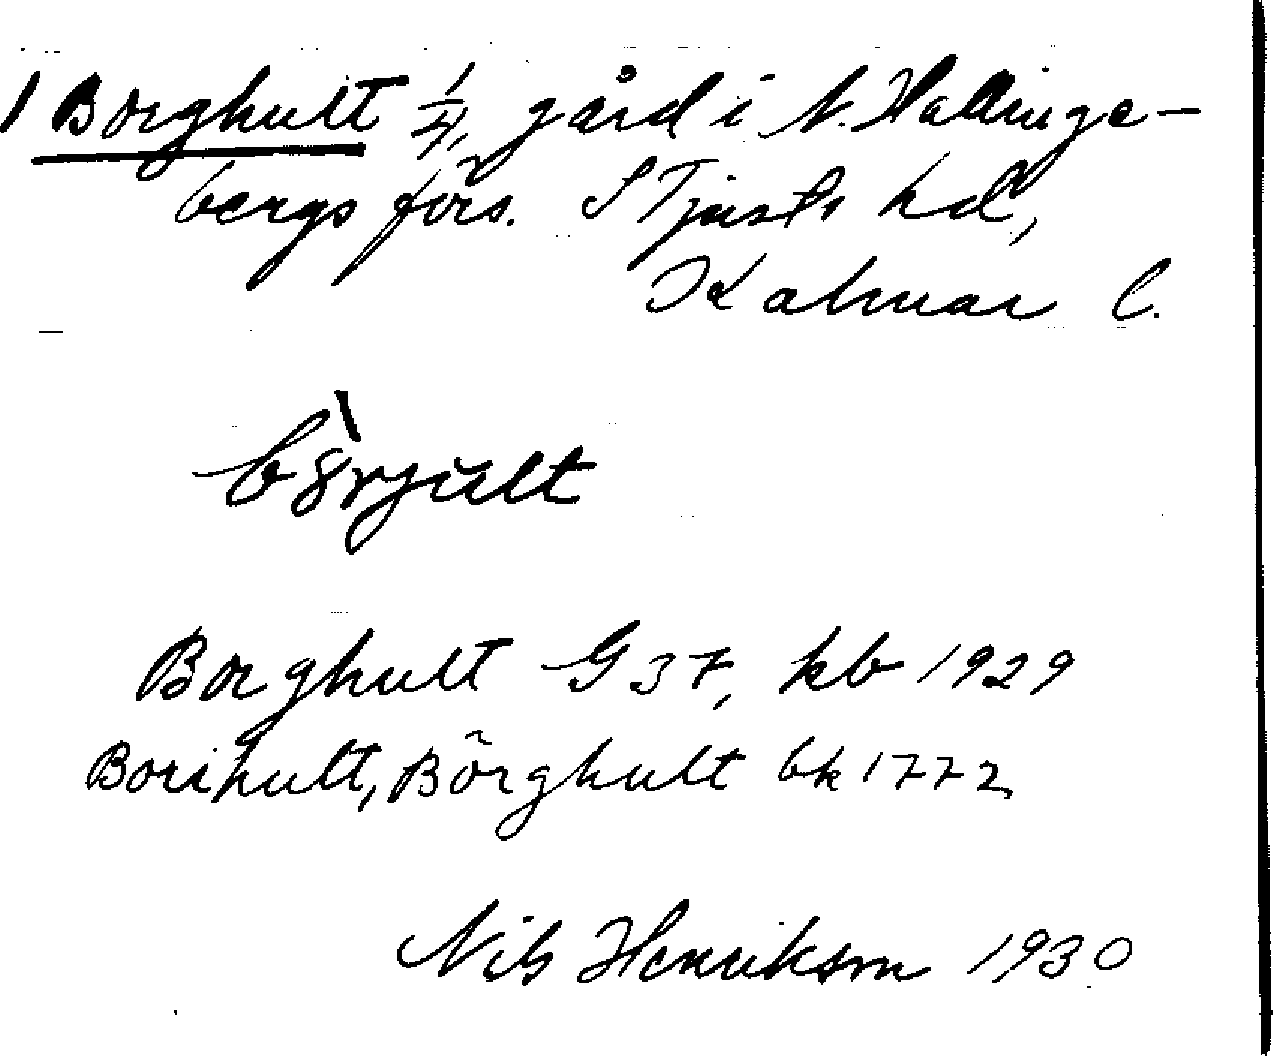 1 Borghult 1/4, gård i N. Hallinge-
bergs förs. S Tjusts hd,
Kalmar l.
b8̀rjult
Borghult G37, kb 1929
Borihult, Bõrghult bk 1772
Nils Henrikson 1930